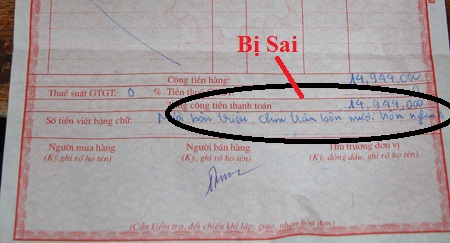 Bị Sai
Cộng tiền hàng: 14,944,000
Thuế suất GTGT: 0 % Tiền
cộng tiền thanh toán 14,944,000
Số tiền viết bằng chữ: bốn triệu, chín trăm bốn mươi bốn
Người mua hàng Người bán hàng Thủ trưởng đơn vị
(Ký, ghi rõ họ tên) (Ký, ghi rõ họ tên) (Ký, đóng dấu, ghi rõ họ tên)
(Cần kiểm tra, đối chiếu khi lập, giao, nhận hóa đơn)